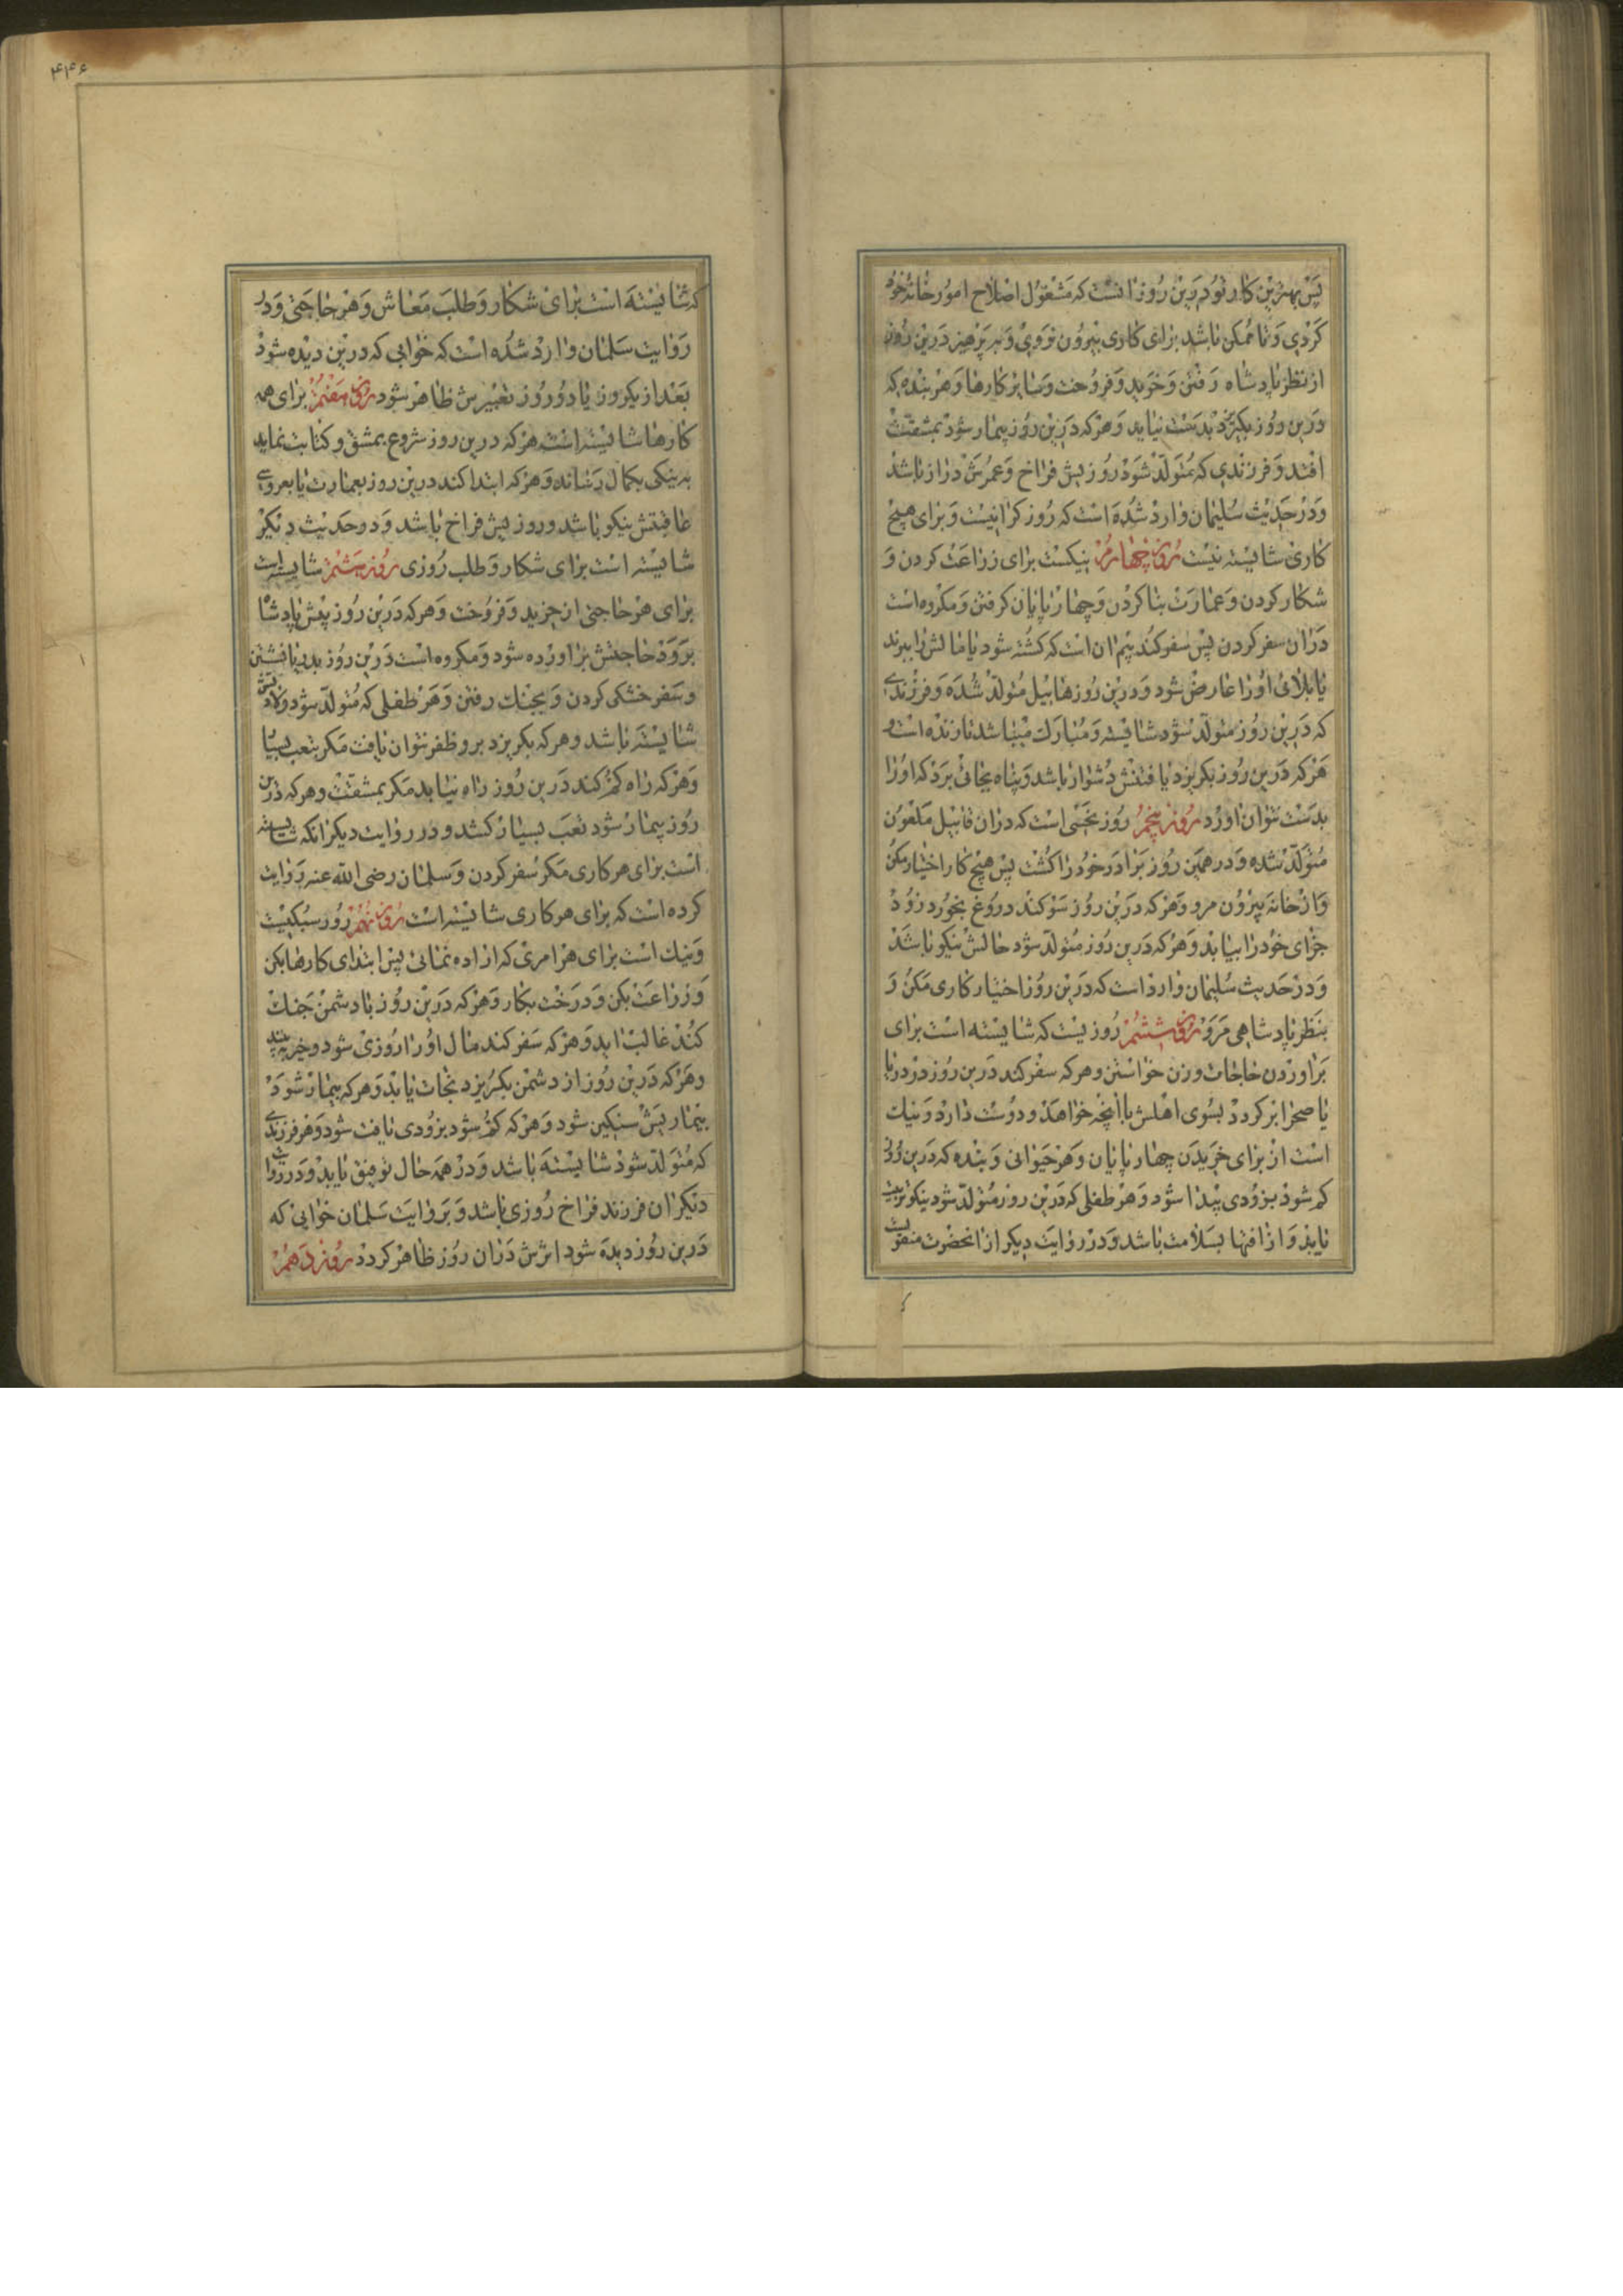 پس بهترین کار تو درین روز انست که مشغول اصلاح امور خانه خود
کردی و تا ممکن باشد برای کاری بیرون نروی و بپرهیز درین روز
از نظر پادشاه رفتن و خرید و فروخت و سایر کارها و هر بنده که
درین روز بکریزد بدست نیاید و هرکه درین روز بیمار شود بمشقت
افتد و فرزندی که متولد شود روزیش فراخ و عمرش دراز باشد
و در حدیث سلیمان وارد شده است که روز کرانیست و برای هیچ
کاری شایسته نیست روز چهارم نیکست برای زراعت کردن و
شکار کردن و عمارت بنا کردن و چهارپایان کرفتن و مکروه است
دران سفر کردن پس سفر کند بیم ان است که کشته شود یا مالش را ببرند
یا بلائی اورا عارض شود و درین روز هابیل متولد شده و فرزندی
که درین روز متولد شود شایسته و مبارک میباشد تا زنده است و
هرکه درین روز بکریزد یافتنش دشوار باشد و پناه بجائی برد که اورا
بدست نتوان اورد روز پنجم روز نحسی است که دران قابیل ملعون
متولد شده و در همین روز برادر خود را کشت پس هیچ کار اختیار مکن
و از خانه بیرون مرو و هرکه درین روز سوکند دروغ بخورد زود
جزای خود را بیابد و هرکه درین روز متولد شود حالش نیکو باشد
و در حدیث سلیمان وارد است که درین روز اختیار کاری مکن و
بنظر پادشاهی مرو روز ششم روزیست که شایسته است برای
براوردن حاجات و زن خواستن و هرکه سفر کند درین روز در دریا
یا صحرا بر کردد بسوی اهلش با انچه خواهد و دوست دارد و نیک
است از برای خریدن چهارپایان و هر حیوانی و بنده که درین روز
کم شود بزودی پیدا شود و هر طفلی که درین روز متولد شود نیکو تربیت
یابد و از افتها بسلامت باشد و در روایت دیکر از انحضرت منقولست
۴۴۶
که شایسته است برای شکار و طلب معاش و هر حاجتی و در
روایت سلمان وارد شده است که خوابی که درین دیده شود
بعد از یکروز یا دو روز تعبیرش ظاهر شود روز هفتم برای همه
کارها شایسته است هرکه درین روز شروع بمشق و کتابت نماید
به نیکی بکمال رساند و هرکه ابتدا کند درین روز بعمارت یا بعروسی
عاقبتش نیکو باشد و روزیش فراخ باشد و در حدیث دیکر
شایسته است برای شکار و طلب روزی روز هشتم شایسته است
برای هر حاجتی از خرید و فروخت و هرکه درین روز پیش پادشاه
برود حاجتش براورده شود و مکروه است درین روز بدریا نشستن
و سفر خشکی کردن و بجنک رفتن و هر طفلی که متولد شود ولادتش
شایسته باشد و هرکه بکریزد برو ظفر نتوان یافت مکر بتعب بسیار
و هرکه راه کم کند درین روز راه نیابد مکر بمشقت و هرکه درین
روز بیمار شود تعب بسیار کشد و در روایت دیکر انکه شایسته
است برای هر کاری مکر سفر کردن و سلمان رضی الله عنه روایت
کرده است که برای هر کاری شایسته است روز نهم روز سبکیست
و نیک است برای هر امری که اراده نمائی پس ابتدای کارها بکن
و زراعت بکن و درخت بکار و هرکه درین روز با دشمن جنک
کند غالب اید و هرکه سفر کند مال اورا روزی شود و خیر بیند
و هرکه درین روز از دشمن بکریزد نجات یابد و هرکه بیمار شود
بیماریش سنکین شود و هرکه کم شود بزودی یافت شود و هر فرزندی
که متولد شود شایسته باشد و در همه حال توفیق یابد و در روایت
دیکر ان فرزند فراخ روزی باشد و بروایت سلمان خوابی که
درین روز دیده شود اثرش دران روز ظاهر کردد روز دهم